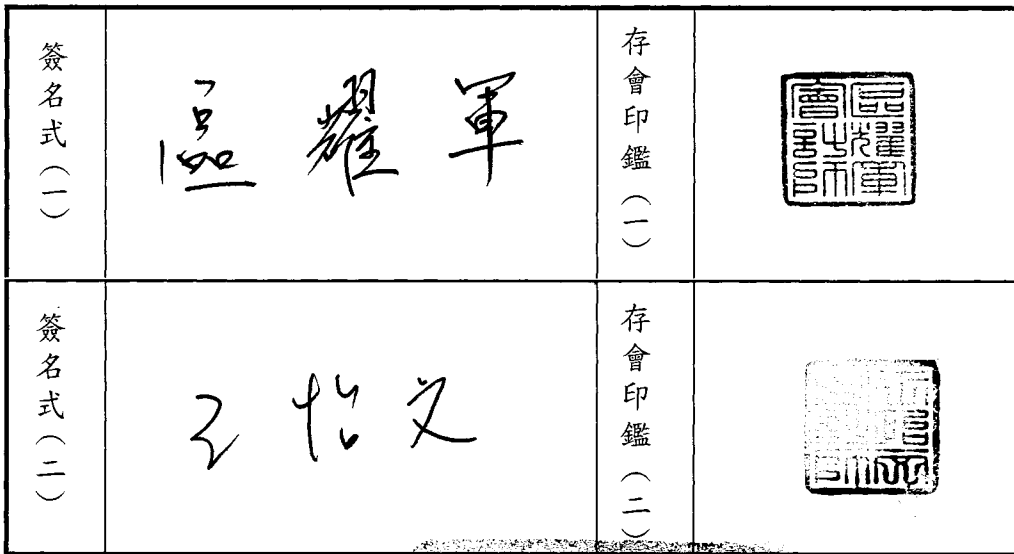 簽名式（一）
區耀軍
存會印鑑（一）
區耀軍
會計師
簽名式（二）
王怡文
存會印鑑（二）